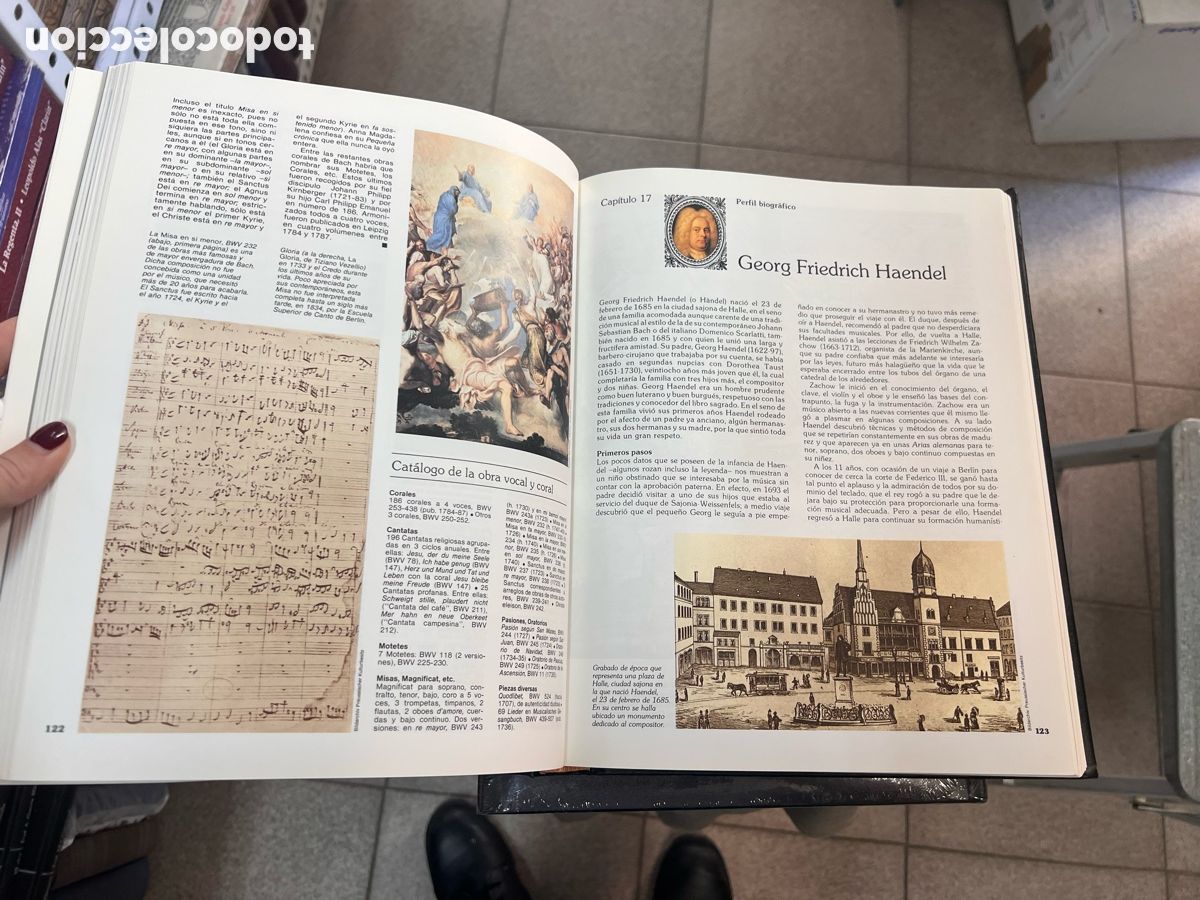 todocoleccion
La Regenta II • Leopoldo Alas "Clarín"
Incluso el título Misa en si
menor es inexacto, pues no
sólo no está toda ella com-
puesta en ese tono, sino ni
siquiera las partes principa-
les, aunque sí en tonos cer-
canos a él (el Gloria está en
re mayor, con algunas partes
en su dominante –la mayor–,
en su subdominante –sol
mayor– o en su relativo –si
menor–; también el Sanctus
está en re mayor; el Agnus
Dei comienza en sol menor y
termina en re mayor; estric-
tamente hablando, sólo está
en si menor el primer Kyrie,
el Christe está en re mayor y
el segundo Kyrie en fa sos-
tenido menor). Anna Magda-
lena confiesa en su Pequeña
crónica que ella nunca la oyó
entera.
Entre las restantes obras
corales de Bach habría que
nombrar sus Motetes, los
Corales, etc. Estos últimos
fueron recogidos por su fiel
discípulo Johann Philipp
Kirnberger (1721-83) y por
su hijo Carl Philipp Emanuel
en número de 186. Armoni-
zados todos a cuatro voces,
fueron publicados en Leipzig
en cuatro volúmenes entre
1784 y 1787.
La Misa en si menor, BWV 232
(abajo, primera página) es una
de las obras más famosas y
de mayor envergadura de Bach.
Dicha composición no fue
concebida como una unidad
por el músico, que necesitó
más de 20 años para acabarla.
El Sanctus fue escrito hacia
el año 1724, el Kyrie y el
Gloria (a la derecha, La
Gloria, de Tiziano Vezellio)
en 1733 y el Credo durante
los últimos años de su
vida. Poco apreciada por
sus contemporáneos, esta
Misa no fue interpretada
completa hasta un siglo más
tarde, en 1834, por la Escuela
Superior de Canto de Berlín.
Catálogo de la obra vocal y coral
Corales
186 corales a 4 voces, BWV
253-438 (pub. 1784-87) • Otros
3 corales, BWV 250-252.
Cantatas
196 Cantatas religiosas agrupa-
das en 3 ciclos anuales. Entre
ellas: Jesu, der du meine Seele
(BWV 78), Ich habe genug (BWV
147), Herz und Mund und Tat und
Leben con la coral Jesu bleibe
meine Freude (BWV 147) • 25
Cantatas profanas. Entre ellas:
Schweigt stille, plaudert nicht
("Cantata del café", BWV 211),
Mer hahn en neue Oberkeet
("Cantata campesina", BWV
212).
Motetes
7 Motetes: BWV 118 (2 versio-
nes), BWV 225-230.
Misas, Magnificat, etc.
Magnificat para soprano, con-
tralto, tenor, bajo, coro a 5 vo-
ces, 3 trompetas, timpanos, 2
flautas, 2 oboes d'amore, cuer-
das y bajo continuo. Dos ver-
siones: en re mayor, BWV 243
(h. 1730) y en mi bemol
BWV 243a (1723) • Misa en si
menor, BWV 232
Misa en fa mayor, BWV 233
BWV
234 (h. 1740) •
nor, BWV 235 (h.
en sol mayor, BWV 236
1740) • Sanctus en do
BWV 237 (1723) •
re mayor, BWV 238
Sanctus correspondientes a
arreglos de obras de otros
res, BWV 239-241 •
eleison, BWV 242.
Pasiones, Oratorios
Pasión según San Mateo, BWV
244 (1727) • Pasión según San
Juan, BWV 245 (1724) •
rio de Navidad, BWV 248
(1734-35) • Oratorio de Pascua,
BWV 249 (1725) • Oratorio de la
Ascensión, BWV 11 (1735).
Piezas diversas
Quodlibet, BWV 524 (hacia
1707), de autenticidad dudosa •
69 Lieder en Musicalisches Ge-
sangbuch, BWV 439-507 (pub.
1736).
Bildarchiv Preussischer Kulturbesitz
122
Capítulo 17
Perfil biográfico
Georg Friedrich Haendel
Georg Friedrich Haendel (o Händel) nació el 23 de
febrero de 1685 en la ciudad sajona de Halle, en el seno
de una familia acomodada aunque carente de una tradi-
ción musical al estilo de la de su contemporáneo Johann
Sebastian Bach o del italiano Domenico Scarlatti, tam-
bién nacido en 1685 y con quien le unió una larga y
fructífera amistad. Su padre, Georg Haendel (1622-97),
barbero-cirujano que trabajaba por su cuenta, se había
casado en segundas nupcias con Dorothea Taust
(1651-1730), veintiocho años más joven que él, la cual
completaría la familia con tres hijos más, el compositor
y dos niñas. Georg Haendel era un hombre prudente
como buen luterano y buen burgués, respetuoso con las
tradiciones y conocedor del libro sagrado. En el seno de
esta familia vivió sus primeros años Haendel rodeado
por el afecto de un padre ya anciano, algún hermanas-
tro, sus dos hermanas y su madre, por la que sintió toda
su vida un gran respeto.
Primeros pasos
Los pocos datos que se poseen de la infancia de Haen-
del –algunos rozan incluso la leyenda– nos muestran a
un niño obstinado que se interesaba por la música sin
contar con la aprobación paterna. En efecto, en 1693 el
padre decidió visitar a uno de sus hijos que estaba al
servicio del duque de Sajonia-Weissenfels; a medio viaje
descubrió que el pequeño Georg le seguía a pie empe-
ñado en conocer a su hermanastro y no tuvo más reme-
dio que proseguir el viaje con él. El duque, después de
oír a Haendel, recomendó al padre que no desperdiciara
sus facultades musicales. Por ello, de vuelta a Halle,
Haendel asistió a las lecciones de Friedrich Wilhelm Za-
chow (1663-1712), organista de la Marienkirche, aun-
que su padre confiaba que más adelante se interesaría
por las leyes, futuro más halagüeño que la vida que le
esperaba encerrado entre los tubos del órgano de una
catedral de los alrededores.
Zachow le inició en el conocimiento del órgano, el
clave, el violín y el oboe y le enseñó las bases del con-
trapunto, la fuga y la instrumentación. Zachow era un
músico abierto a las nuevas corrientes que él mismo lle-
gó a plasmar en algunas composiciones. A su lado
Haendel descubrió técnicas y métodos de composición
que se repetirían constantemente en sus obras de madu-
rez y que aparecen ya en unas Arias alemanas para te-
nor, soprano, dos oboes y bajo continuo compuestas en
su niñez.
A los 11 años, con ocasión de un viaje a Berlín para
conocer de cerca la corte de Federico III, se ganó hasta
tal punto el aplauso y la admiración de todos por su do-
minio del teclado, que el rey rogó a su padre que le de-
jara bajo su protección para proporcionarle una forma-
ción musical adecuada. Pero a pesar de ello, Haendel
regresó a Halle para continuar su formación humanísti-
Grabado de época que
representa una plaza de
Halle, ciudad sajona en
la que nació Haendel,
el 23 de febrero de 1685.
En su centro se halla
ubicado un monumento
dedicado al compositor.
Bildarchiv Preussischer Kulturbesitz
123